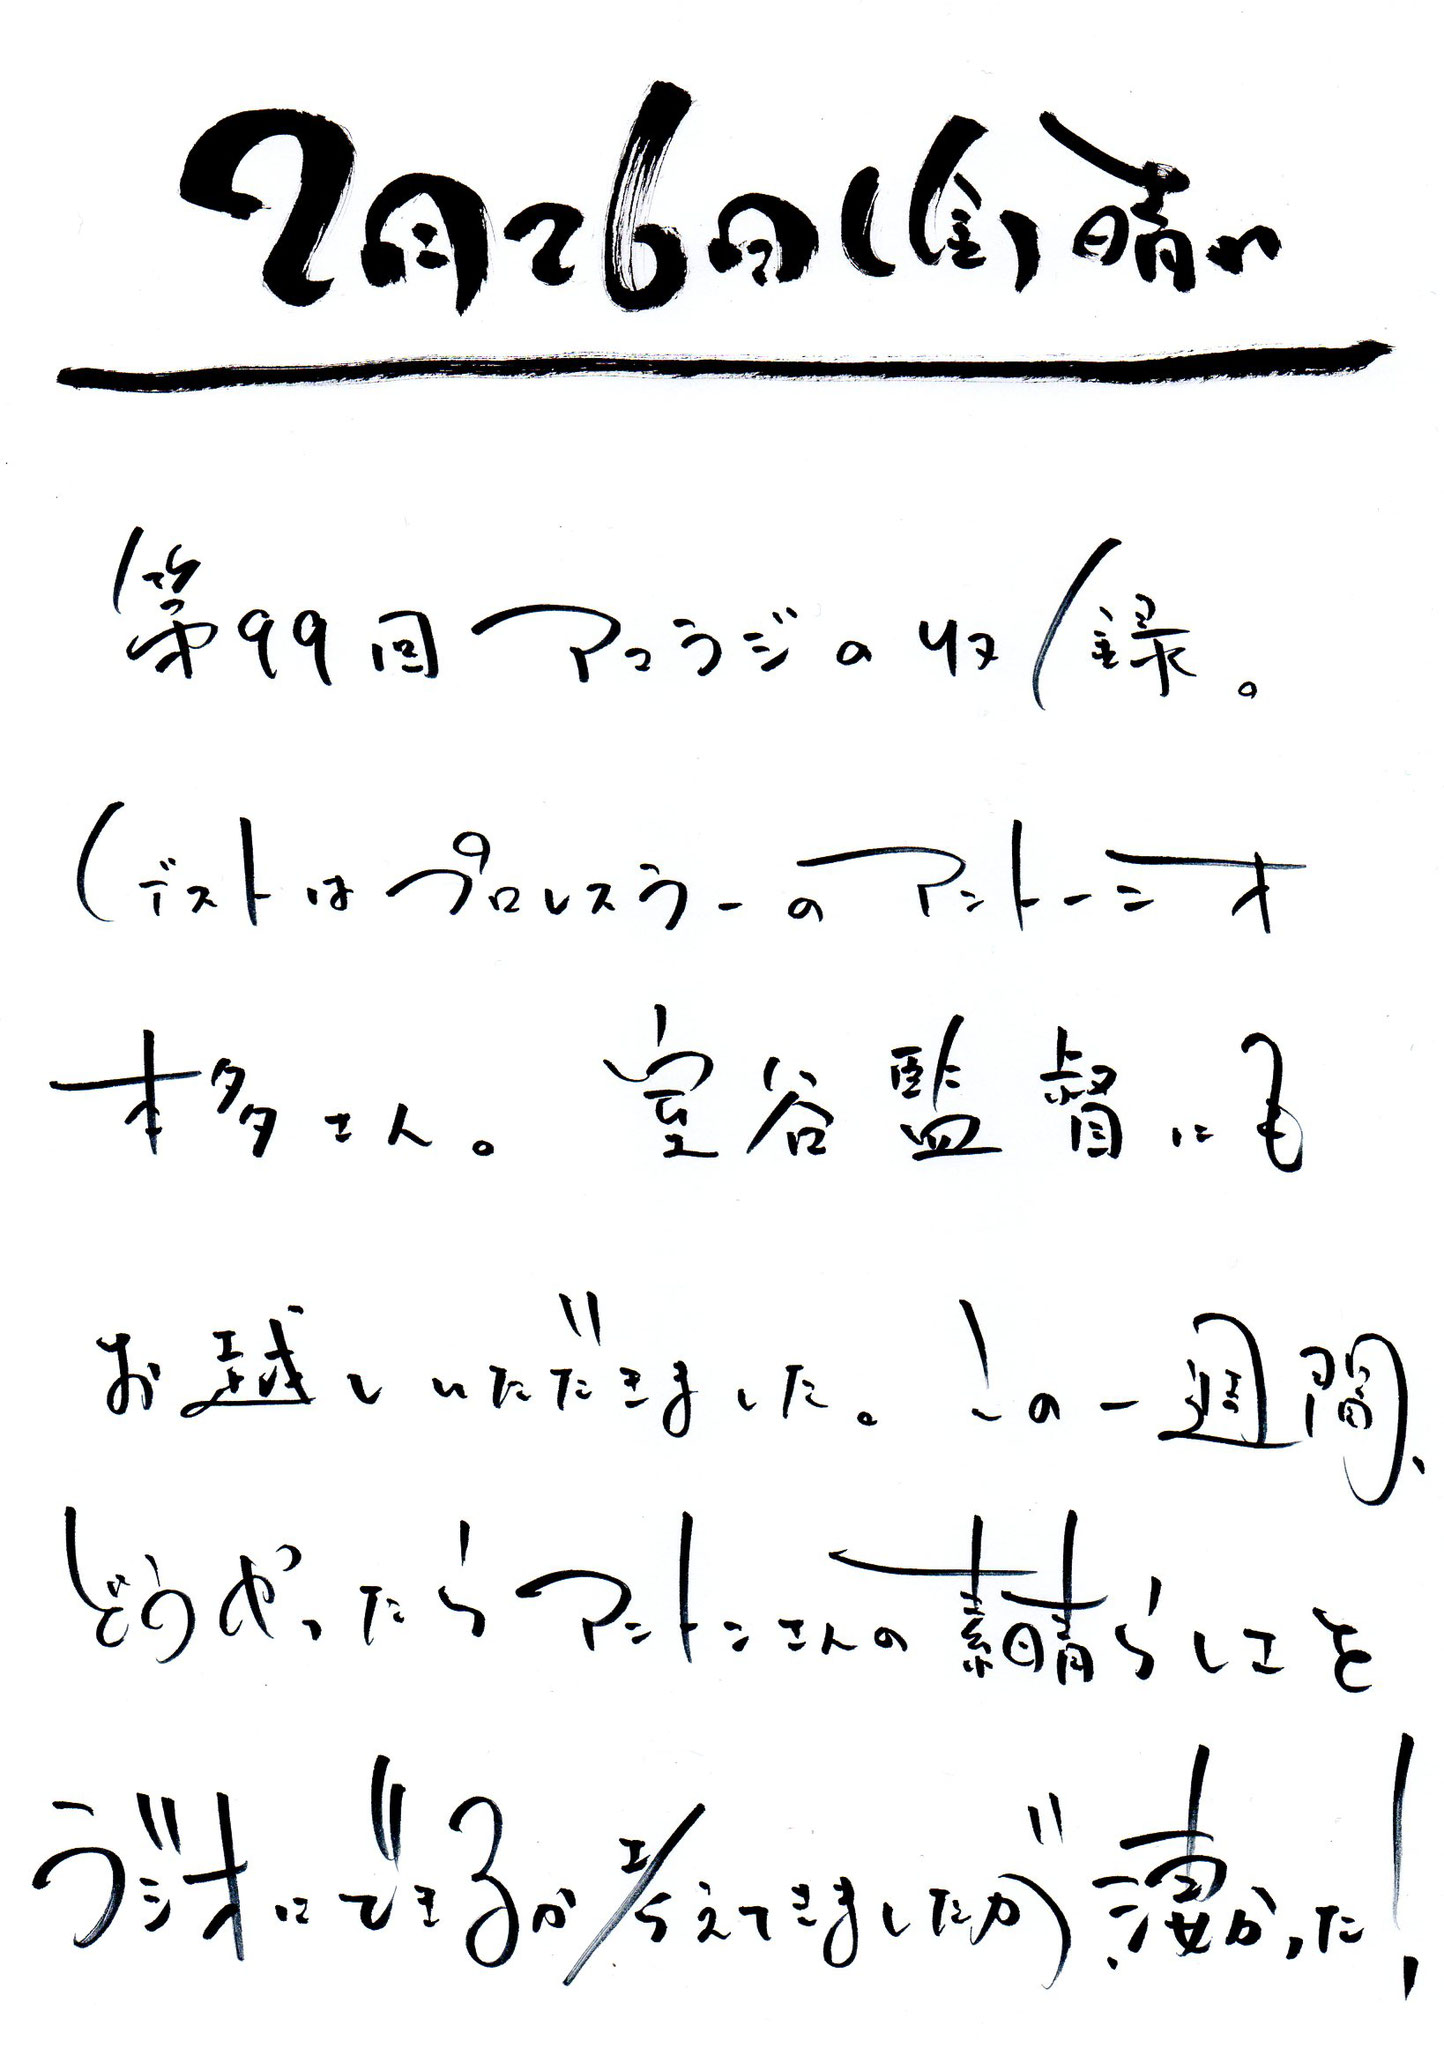 7月26日(金)晴れ
第99回アコラジの収録。
ゲストはプロレスラーのアントーニオ
本多さん。室谷監督にも
お越しいただきました。この一週間、
どうやったらアントンさんの素晴らしさを
ラジオにできるか考えてきましたが凄かった!